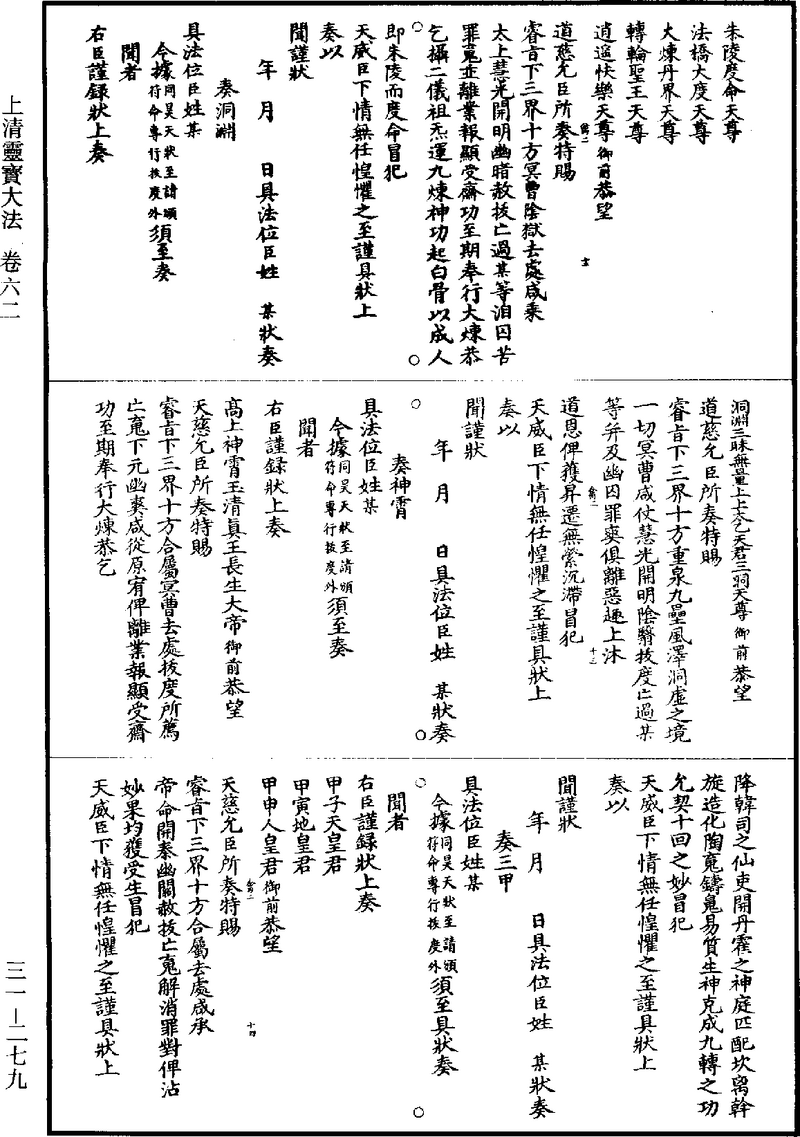 朱陵度命天尊
法橋大度天尊
大煉丹界天尊
轉輪聖王天尊
逍遥快樂天尊御前恭望
道慈允臣所奏特賜
睿旨下三界十方冥曹陰獄去處咸乘
太上慧光開明幽暗赦拔亡過某等洎囚苦
罪䰟並離業報顯受齋功至期奉行大煉恭
乞攝二儀祖炁運九煉神功起白骨以成人
即朱陵而度命冒犯
天威臣下情無任惶懼之至謹具狀上
奏以
聞謹狀
年 月 日具法位臣姓 某狀奏
奏洞淵
具法位臣姓某
今據同昊天狀至請頒符命專行拔度外須至奏
聞者
右臣謹録狀上奏
洞淵三昧無量上上太乙天君三洞天尊御前恭望
道慈允臣所奏特賜
睿旨下三界十方重泉九壘風澤洞虛之境
一切冥曹咸仗慧光開明陰翳拔度亡過某
等并及幽囚罪爽俱離惡趣上沐
道恩俾獲昇遷無縈沉滯冒犯
天威臣下情無任惶懼之至謹具狀上
奏以
聞謹狀
年 月 日具法位臣姓 某狀奏
奏神霄
具法位臣姓某
今據同昊天狀至請頒符命專行拔度外須至奏
聞者
右臣謹録狀上奏
高上神霄玉清真王長生大帝御前恭望
天慈允臣所奏特賜
睿旨下三界十方合屬冥曹去處拔度所薦
亡䰟下元幽爽咸從原宥俾離業報顯受齋
功至期奉行大煉恭乞
降韓司之仙吏開丹霍之神庭匹配坎离幹
旋造化陶䰟鑄鬼易質生神克成九轉之功
允契十回之妙冒犯
天威臣下情無任惶懼之至謹具狀上
奏以
聞謹狀
年 月 日具法位臣姓 某狀奏
奏三甲
具法位臣姓某
今據同昊天狀至請頒符命專行拔度外須至具狀奏
聞者
右臣謹録狀上奏
甲子天皇君
甲寅地皇君
甲申人皇君御前恭望
天慈允臣所奏特賜
睿旨下三界十方合屬去處咸承
帝命開泰幽關赦拔亡䰟解消罪對俾沾
妙果均獲受生冒犯
天威臣下情無任惶懼之至謹具狀上
上清靈寶大法 卷六二
三一—二七九